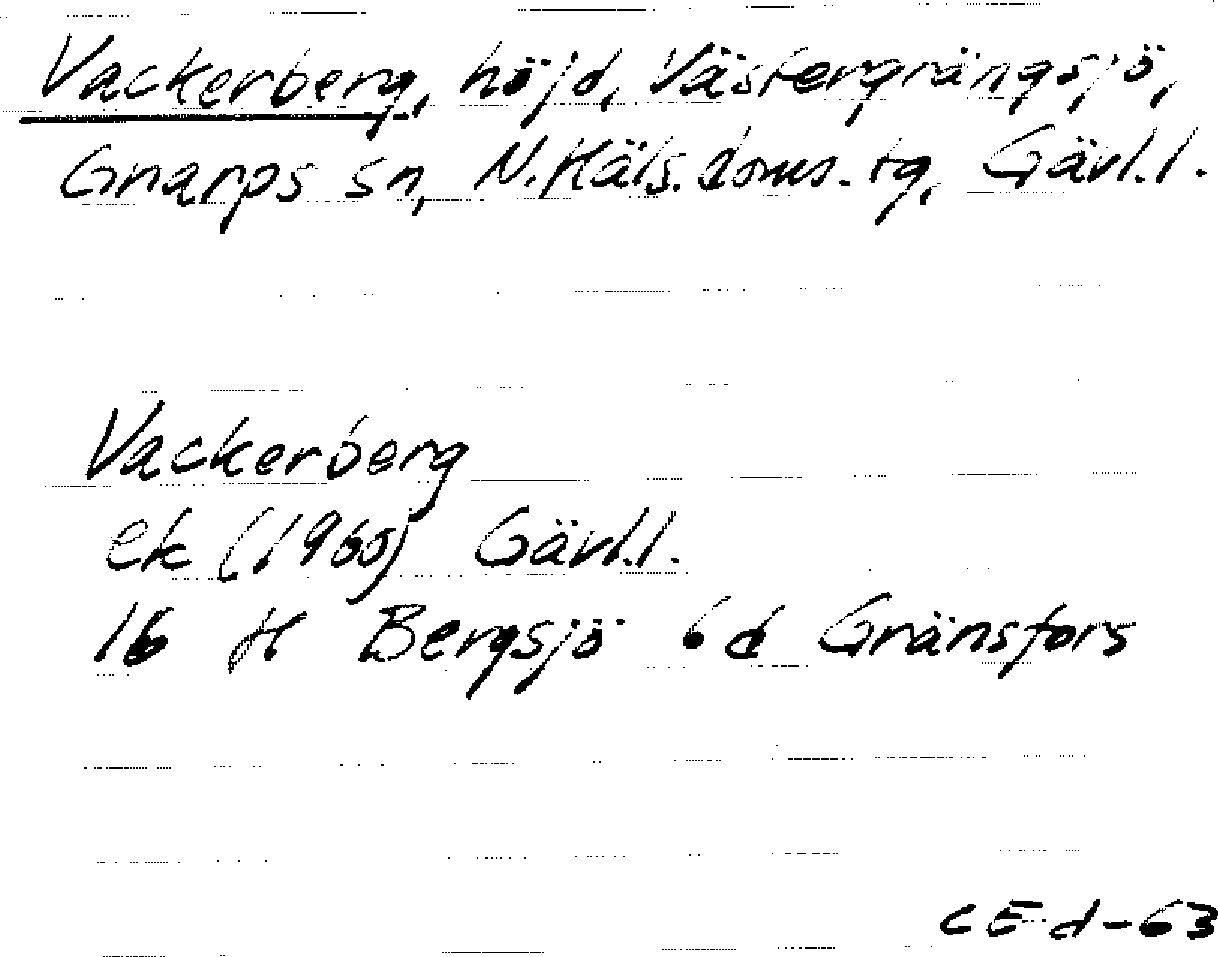 Vackerberg, höjd, Västergrängsjö,
Gnarps sn, N. Häls. doms. tg, Gävl. l.
Vackerberg
ek (1965) Gävl. l.
16 H Bergsjö 6d Gränsfors
CE d-63